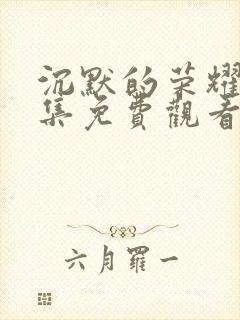 沉默的荣耀
集免費觀看
六月羅一